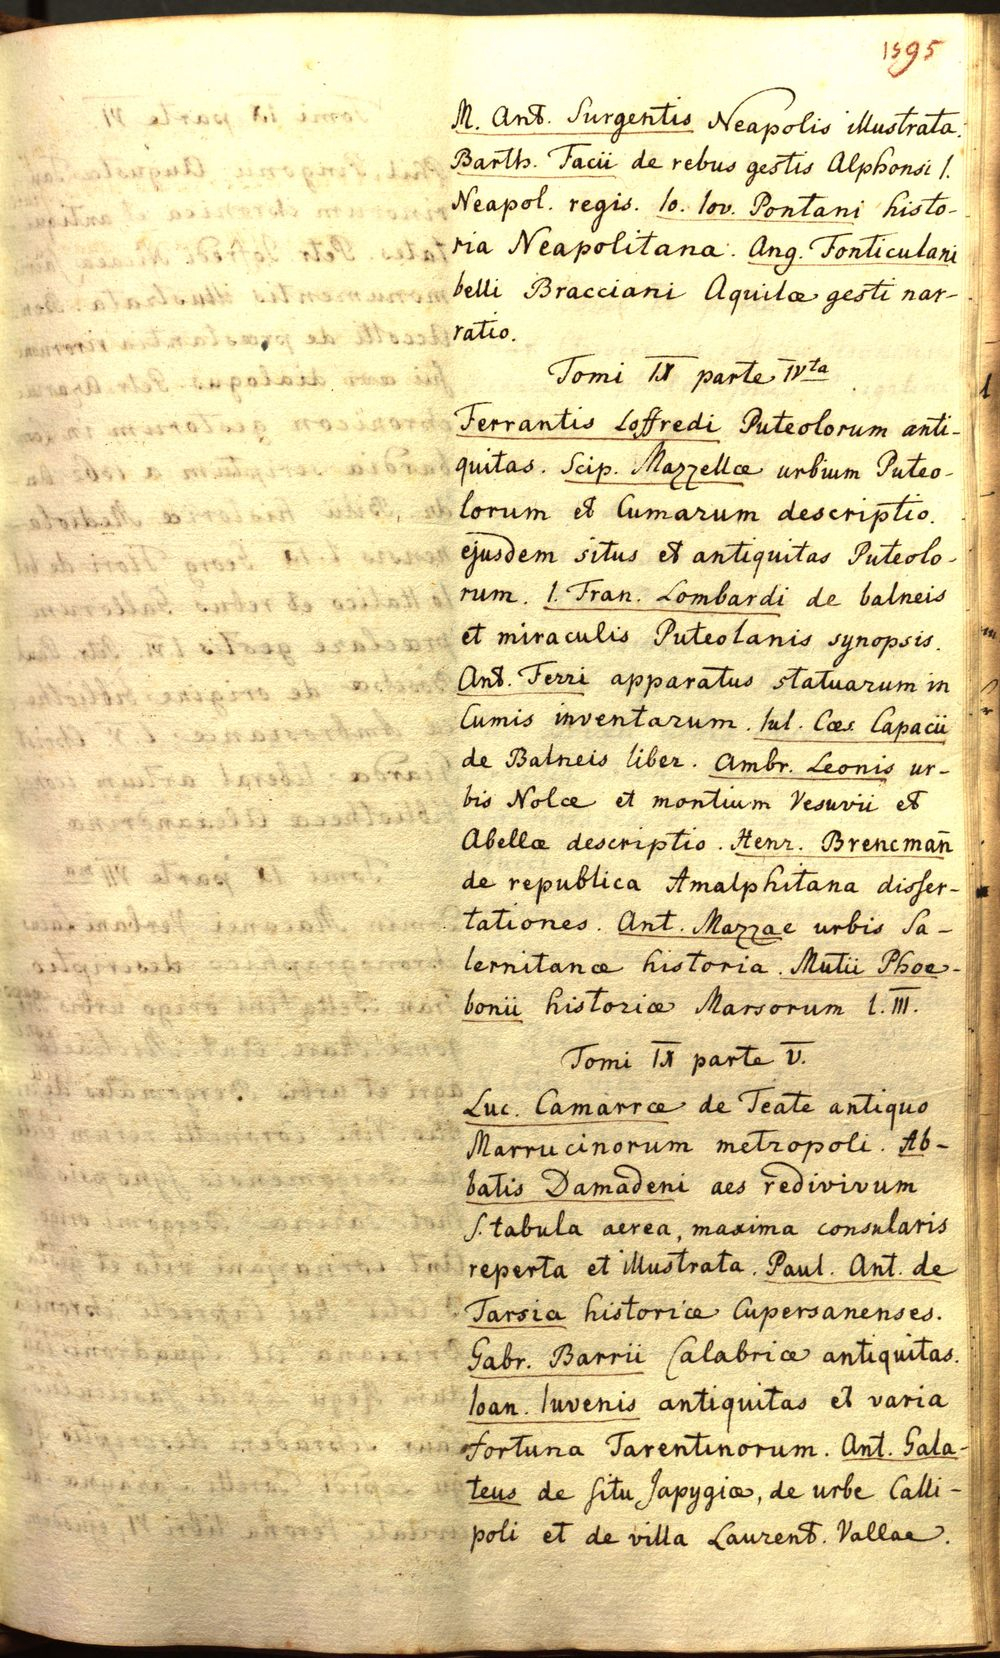 1595
M. Ant. Surgentis Neapolis illustrata.
Barth. Facii de rebus gestis Alphonsi I.
Neapol. regis. Io. Iov. Pontani histo-
ria Neapolitana. Ang. Fonticulani
belli Bracciani Aquilæ gesti nar-
ratio.
Tomi IX parte IVta
Ferrantis Loffredi Puteolorum anti-
quitas. Scip. Mazzellæ urbium Puteo-
lorum et Cumarum descriptio.
ejusdem situs et antiquitas Puteolo-
rum. I. Fran. Lombardi de balneis
et miraculis Puteolanis synopsis.
Ant. Ferri apparatus statuarum in
Cumis inventarum. Iul. Cæs. Capacii
de Balneis liber. Ambr. Leonis ur-
bis Nolæ et montium Vesuvii et
Abellæ descriptio. Henr. Brencmañ
de republica Amalphitana disser-
tationes. Ant. Mazzae urbis Sa-
lernitanæ historia. Mutii Phoe-
bonii historiæ Marsorum l. III.
Tomi IX parte V.
Luc. Camarræ de Teate antiquo
Marrucinorum metropoli. Ab-
batis Damadeni aes redivivum
S. tabula aerea, maxima consularis
reperta et illustrata. Paul. Ant. de
Tarsia historiæ Cupersanenses.
Gabr. Barrii Calabriæ antiquitas.
Ioan. Iuvenis antiquitas et varia
fortuna Tarentinorum. Ant. Gala-
teus de situ Japygiæ, de urbe Calli-
poli et de villa Laurent. Vallae.